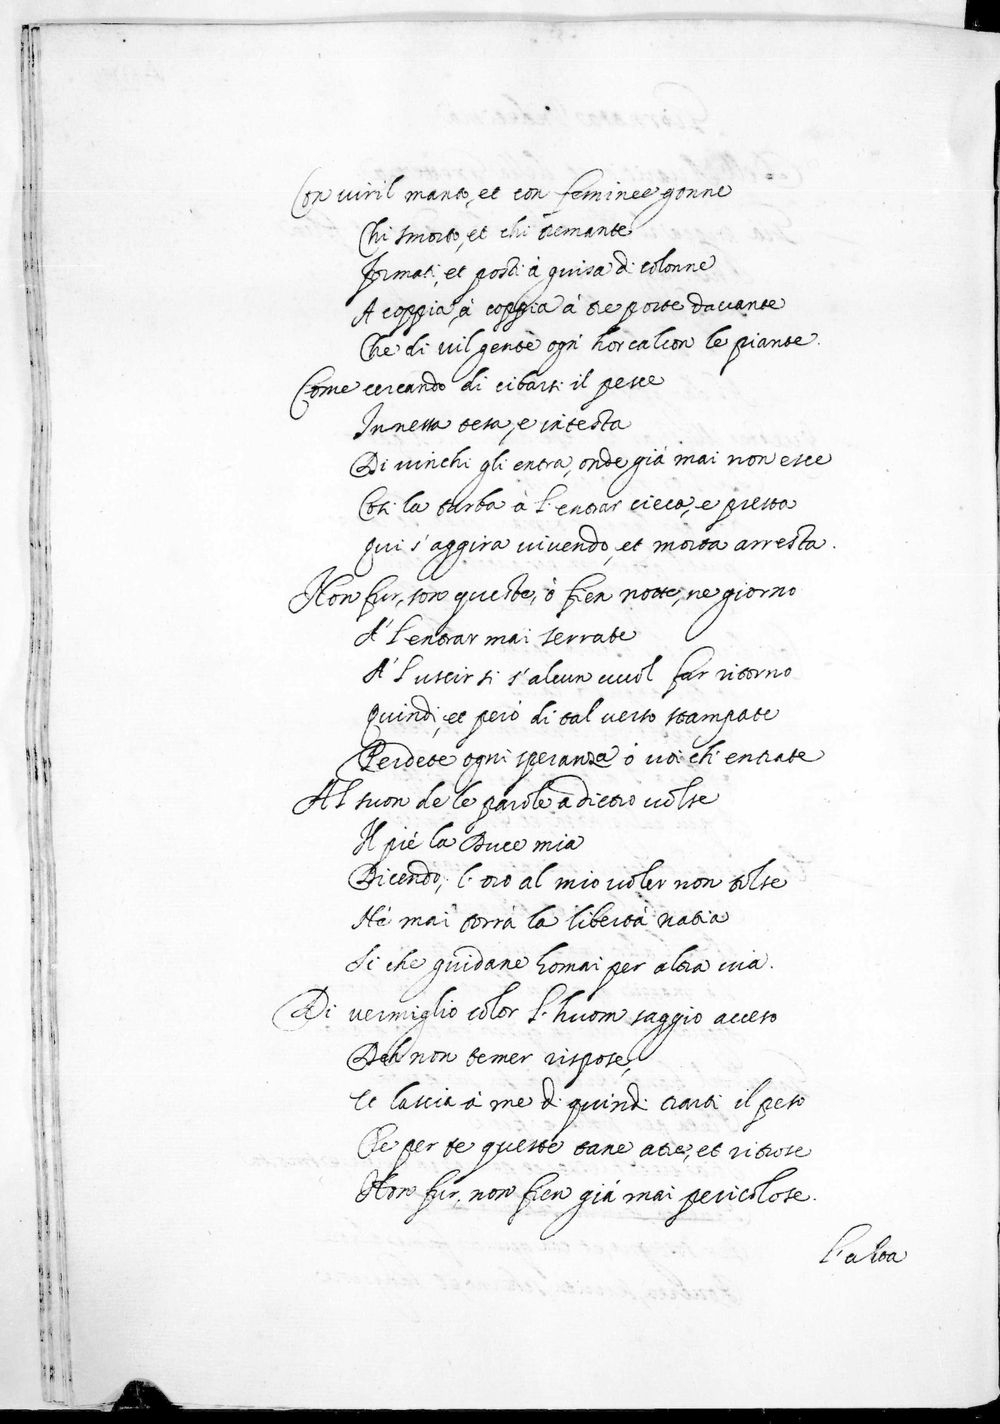 Con viril manto, et con feminee gonne
Chi smorto, et chi tremante
Formati, et posti à guisa di colonne
A coppia, à coppia à tre porte davante
Che di vil gente ogn'hor calcon le piante.
Come cercando di cibarsi il pesce
In nessa tesa, e intesta
Di vinchi gli entra, onde già mai non esce
Così la turba à l'entrar cieca, e presta
Qui s'aggira vivendo, et morta arresta.
Non fur, son queste, ò fien notte, ne giorno
A' l'entrar mai serrate
A' l'uscir sì s'alcun vuol far ritorno
Quindi, et però di tal verso stampate
Perdete ogni speranza ò voi ch'entrate
Al suon de le parole a dietro volse
Il piè la Duce mia
Dicendo, l'oro al mio voler non tolse
Nè mai torrà la libertà natia
Si che guidane homai per altra via.
Di vermiglio color l'huom saggio acceso
Deh non temer rispose,
E lascia à me di quindi trarti il peso
Che per te queste tane atre, et ritrose
Non fur, non fien già mai pericolose.
L'altra